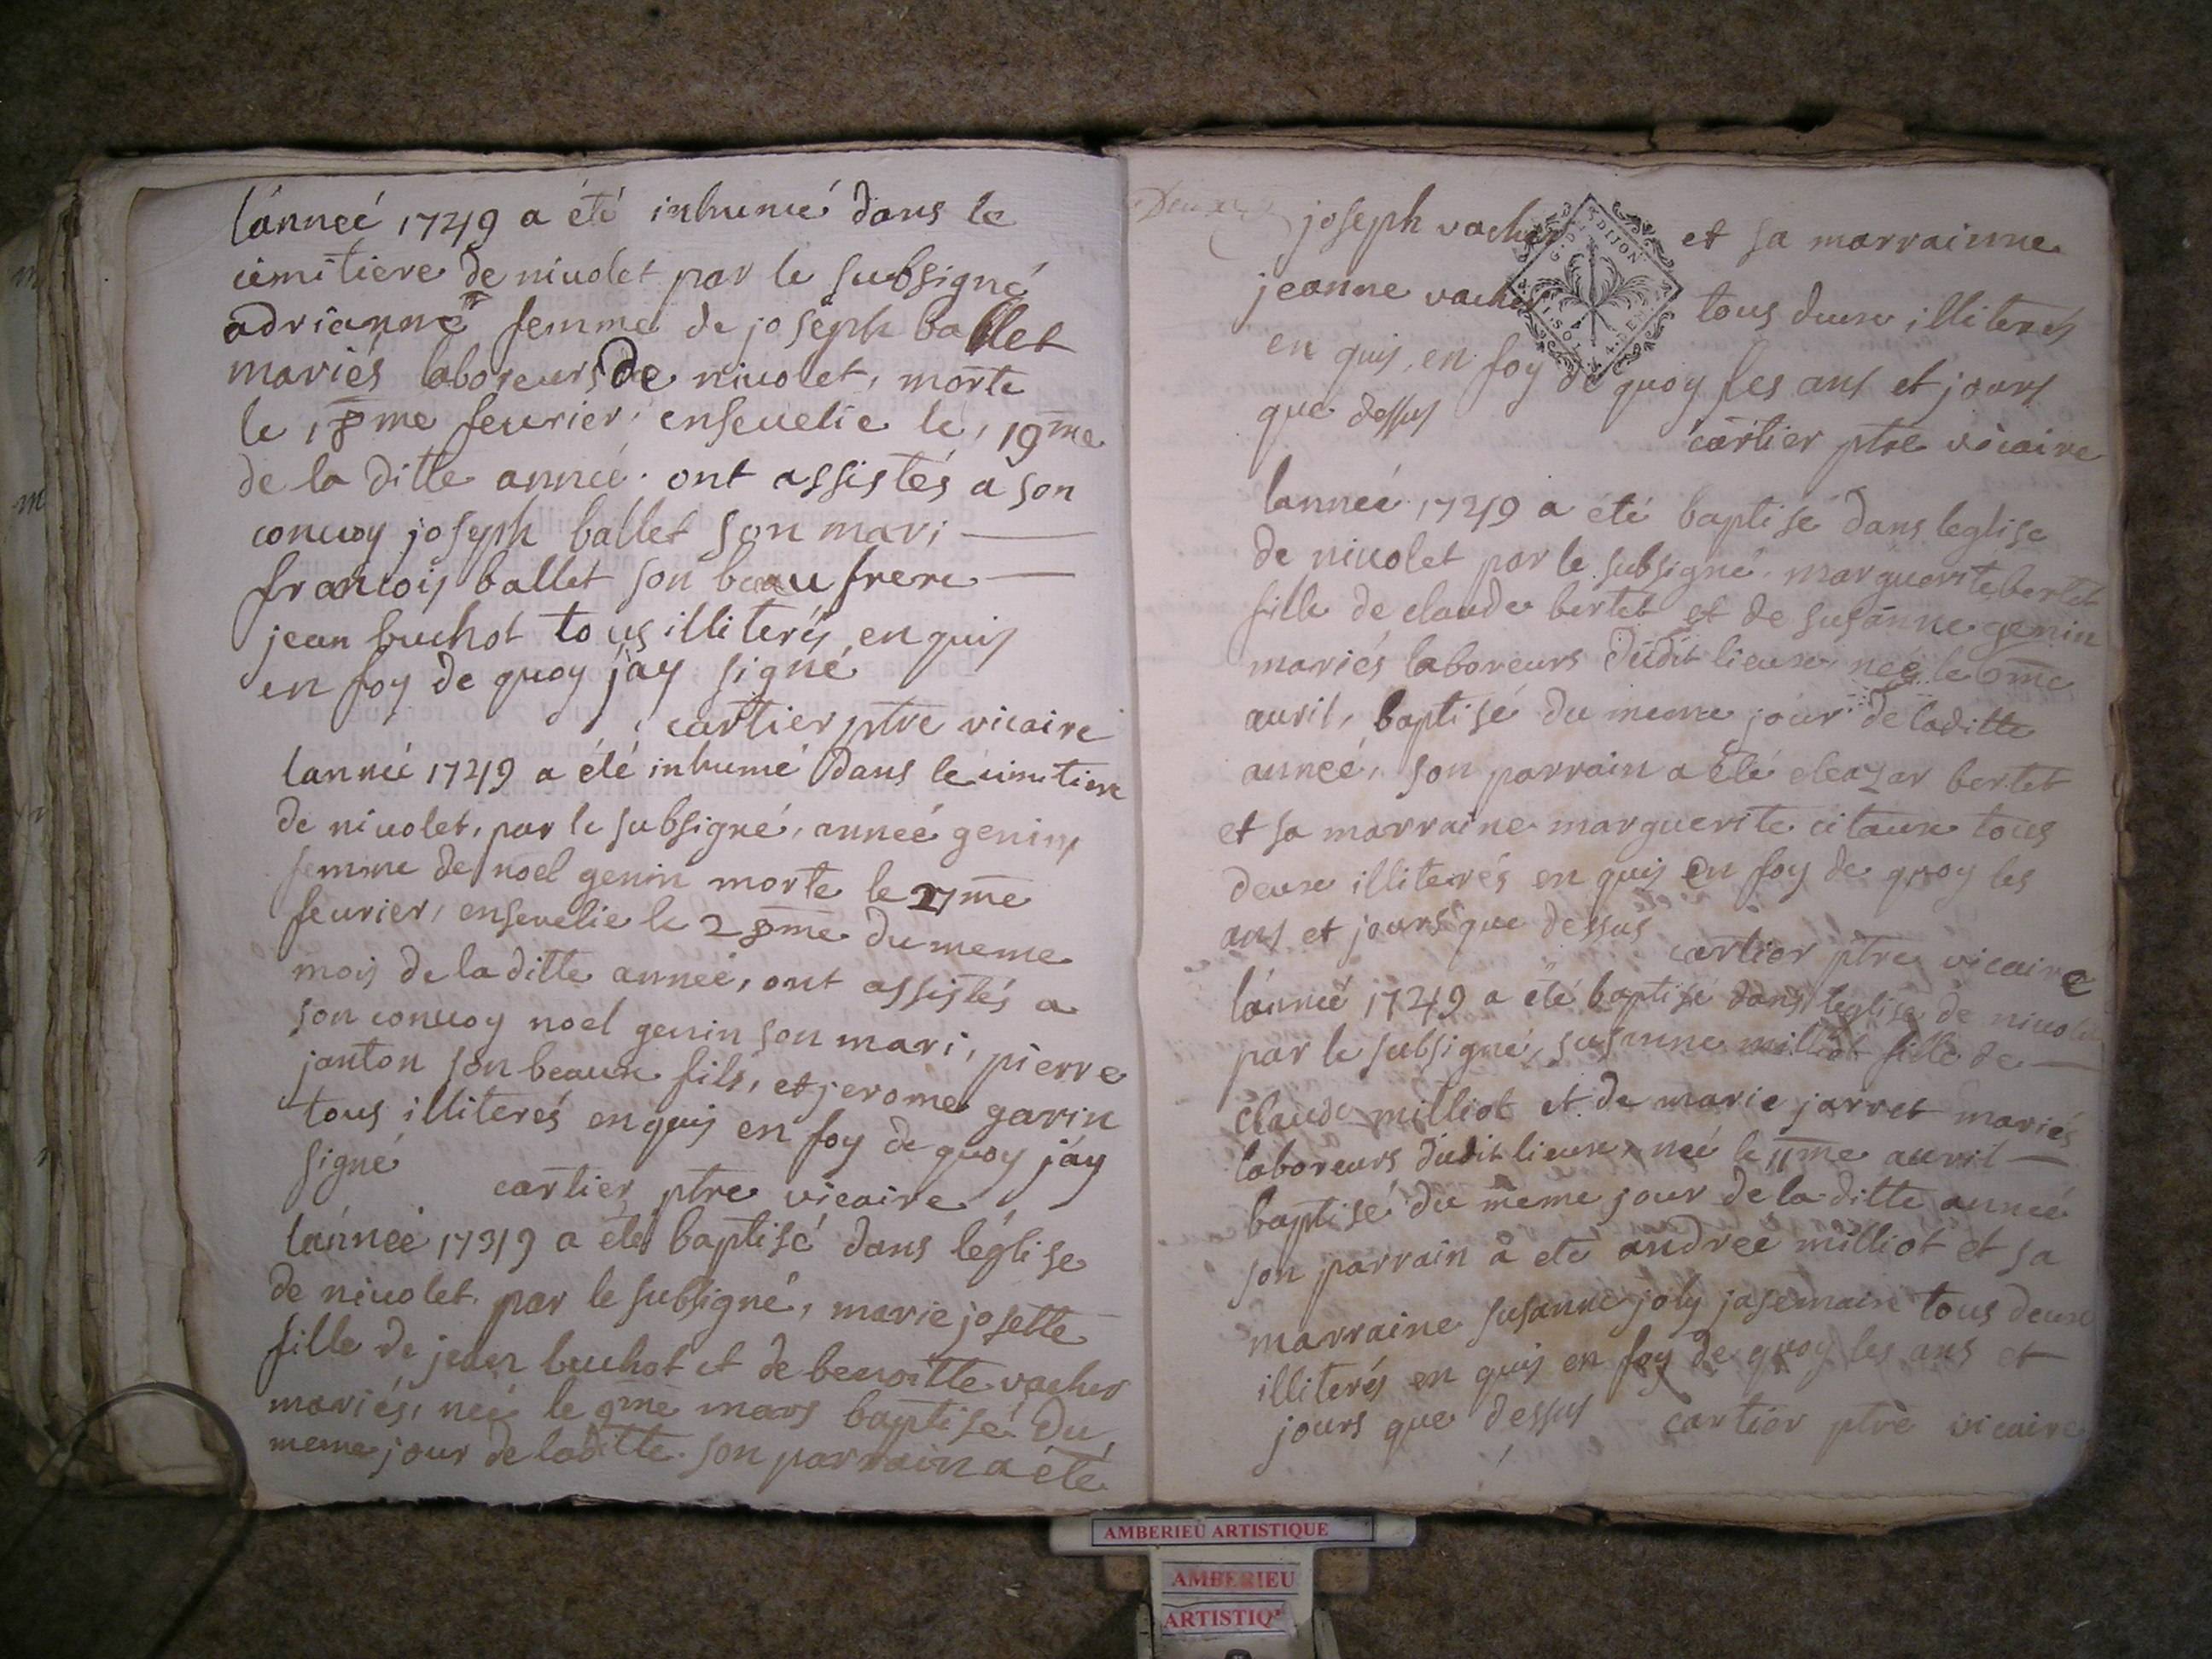 lánneé 1749 a été inhumé dans le
cimitiere de niuolet par le subsigné
adrianne femme de joseph ballet
mariés laboreurs de niuolet, morte
le 18me feurier, enseuelie le, 19me
de la ditte anneé. ont assistés a son
conuoy joseph ballet son mari
francois ballet son beau frere
jean buchot tous illiterés, enquis
en foy de quoy jay signé
cartier ptre vicaire
lanneé 1749 a été inhumé dans le cimitiere
de niuolet, par le subsigné, anneé genin
femme de noel genin morte le 27me
feurier, enseuelie le 28me du meme
mois de la ditte anneé, ont assistés a
son conuoy noel genin son mari, pierre
janton son beaux fils, et jerome garin
tous illiterés enquis en foy de quoy jáy
signé
cartier ptre vicaire
lánneé 1749 a été baptisé dans léglise
de niuolet par le subsigné, marie josette
fille de jean buchot et de benoitte vacher
mariés, neé le 9me mars baptisé du
meme jour de laditte son parrain a été
joseph vacher et sa marrainne
G. D. DIJON
jeanne vacher tous deux illiterés
en quis, en foy de quoy les ans et jours
que dessus
cartier ptre vicaire
lanneé 1749 a été baptisé dans leglise
de niuolet par le subsigné marguerite bertet
fille de claude bertet et de susanne genin
mariés laboreurs dudit lieux, neé le 6me
auril, baptisé du meme jour de laditte
anneé, son parrain a été eleazar bertet
et sa marraine marguerite citaux tous
deux illiterés en quis en foy de quoy les
ans et jours que dessus
cartier ptre vicaire
lánneé 1749 a été baptisé dans leglise de niuolet
par le subsigné, susanne milliot fille de
claude milliot et de marie jarret mariés
laboreurs dudit lieux, neé le 11me auril
baptisé du meme jour de la ditte anneé
son parrain a eté andreé milliot et sa
marraine susanne joly tous deux
illiterés en quis en foy de quoy les ans et
jours que dessus cartier ptre vicaire
AMBERIEU ARTISTIQUE
AMBERIEU
ARTISTIQ